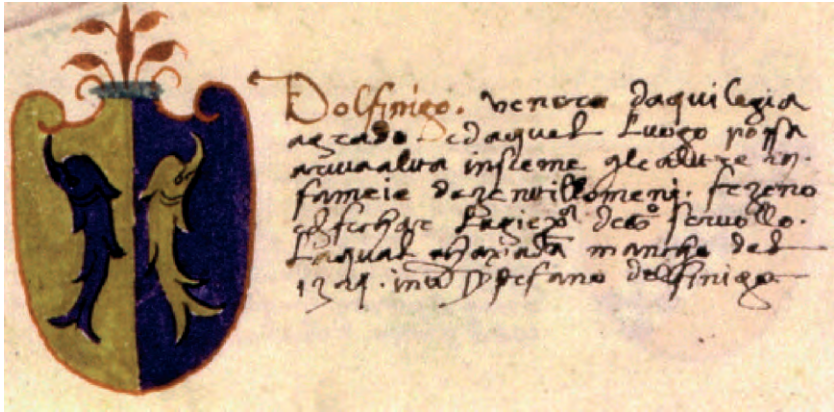 Dolfinigo. venere daquilegia
agrado. edaquel Luogo possa
arivaalta insieme
fameie dezentillomeni. fezeno
edifichar Lagiexia de Servollo.
Laqual chaxada mancho del
in stefano dolfinigo